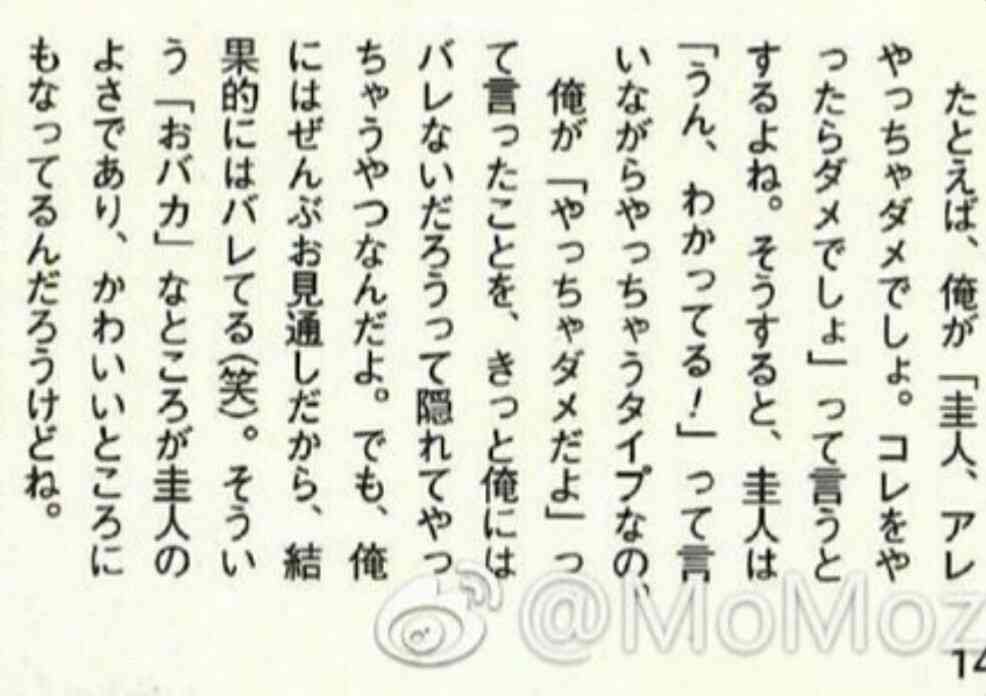 たとえば、俺が「圭人、アレ
やっちゃダメでしょ。コレをや
ったらダメでしょ」って言うと
するよね。そうすると、圭人は
「うん、わかってる！」って言
いながらやっちゃうタイプなの、
俺が「やっちゃダメだよ」っ
て言ったことを、きっと俺には
バレないだろうって隠れてやっ
ちゃうやつなんだよ。でも、俺
にはぜんぶお見通しだから、結
果的にはバレてる(笑)。そうい
う「おバカ」なところが圭人の
よさであり、かわいいところに
もなってるんだろうけどね。
@MoMoz
14